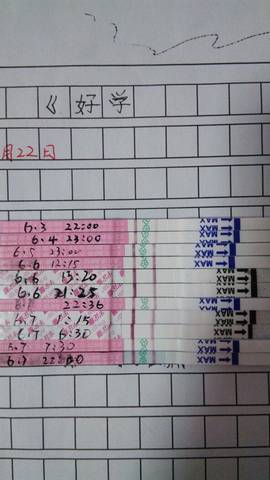 《好学
月22日
6.3 22:00
6.4 23:00
6.5 23:00
6.6 12:15
6.6 15:20
6.6 21:25
22:36
6.7 8:15
6.7 6:30
6.7 7:30
MAX
MAX
MAX
MAX
MAX
MAX
MAX
MAX
MAX
MAX